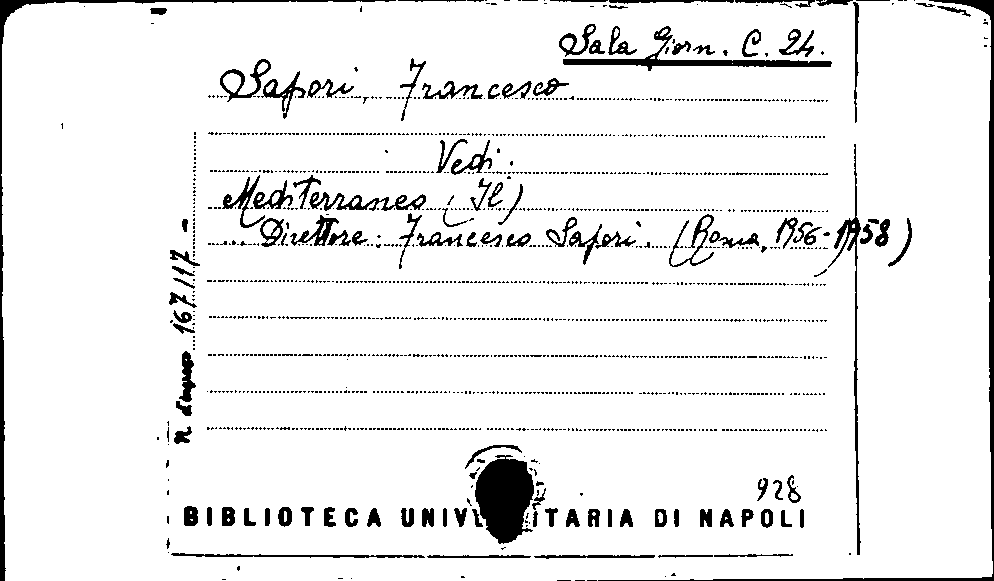 Sala Giorn. C. 24.
Sapori, Francesco.
Vedi:
Mediterraneo (Il)
... Direttore: Francesco Sapori. (Roma, 1956-1958)
n. d'ingresso 167/117 -
928
BIBLIOTECA UNIV ITARIA DI NAPOLI